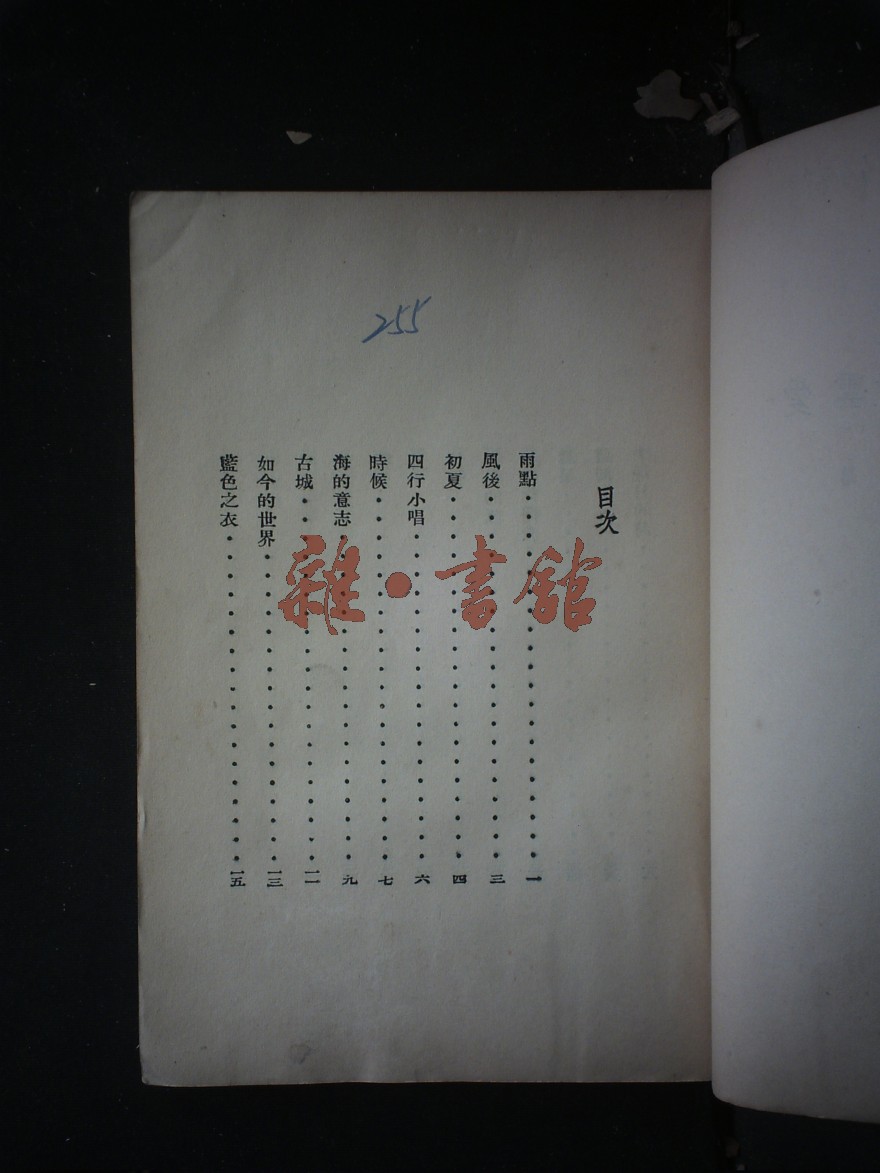 255
目次
雨點・・・・・・・・・・・・・・・・・・・・一
風後・・・・・・・・・・・・・・・・・・・・三
初夏・・・・・・・・・・・・・・・・・・・・四
四行小唱・・・・・・・・・・・・・・・・・・六
時候・・・・・・・・・・・・・・・・・・・・七
海的意志・・・・・・・・・・・・・・・・・・九
古城・・・・・・・・・・・・・・・・・・・・一一
如今的世界・・・・・・・・・・・・・・・・・一三
藍色之衣・・・・・・・・・・・・・・・・・・一五
雜・書館